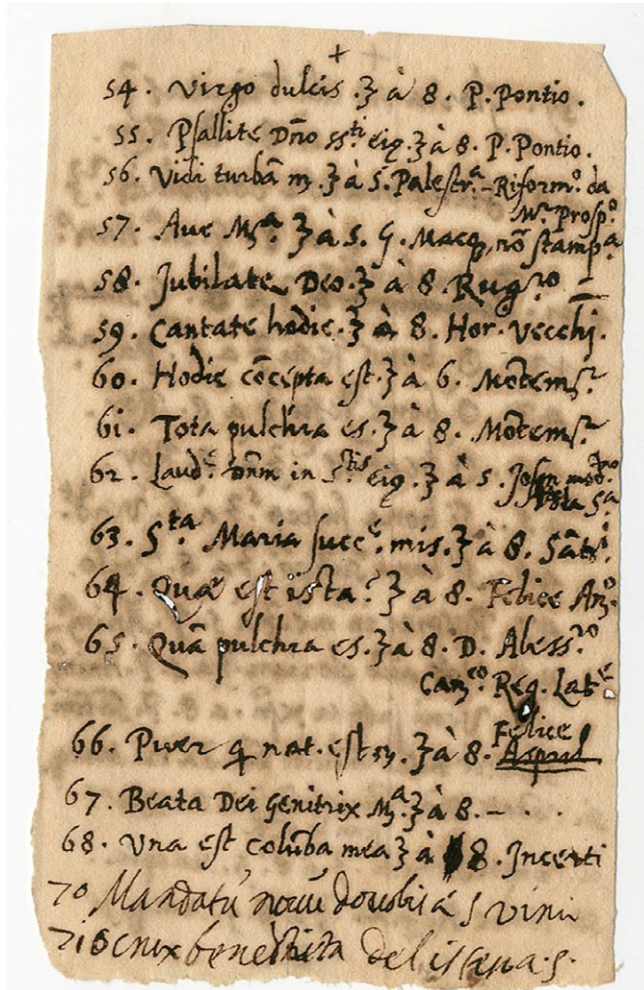 +
54. Virgo dulcis .Ʒ à 8. P. Pontio.
55. Psallite Dño ss.ti eiq.Ʒ à 8. P. Pontio.
56. Vidi turbã m.Ʒ à 5. Palestr.a - Riform.o da
M.r Prosp.o
57. Aue M.a Ʒ à 5. G. Macq, nõ stamp.a
58. Jubilate Deo.Ʒ à 8. Rug.ro -
59. Cantate hodie.Ʒ à 8. Hor. Vecchi.
60. Hodie cõcepta est.Ʒ à 6. Mõtem.r
61. Tota pulchra es.Ʒ à 8. Mõtem.r
62. Laud.e Dñm in S.tis eiq.Ʒ à 5.
63. S.ta Maria succ.e mis.Ʒ à 8. Sãt.i
64. Quæ est ista? Ʒ à 8. Felice An.o
65. Quã pulchra es.Ʒ à 8. D. Aless.ro
Can.co Reg. Lat.e
66. Puer q nat. est m.Ʒ à 8. Felice
67. Beata Dei Genitrix M.a Ʒ à 8. -
68. Una est colũba mea Ʒ à 8. Incerti
70 Mandatũ nouũ do uobis à 5
71 O crux benedicta